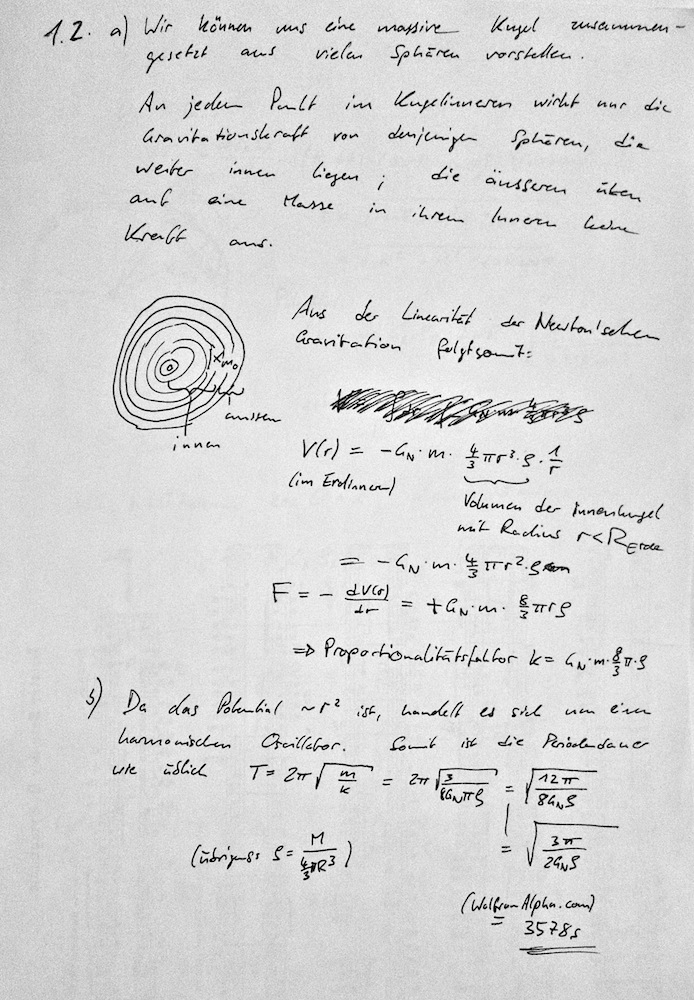 1.2. a) Wir können uns eine massive Kugel zusammen-
gesetzt aus vielen Sphären vorstellen.
An jedem Punkt im Kugelinneren wirkt nur die
Gravitationskraft von denjenigen Sphären, die
weiter innen liegen; die äusseren üben
auf eine Masse in ihrem Inneren keine
Kraft aus.
Aus der Linearität der Newton'schen
Gravitation folgt somit:
x m₀
aussen
innen
V(r) = -G_N · m · 4/3 πr³ · ρ · 1/r
(im Erdinnern)
Volumen der Innenkugel
mit Radius r < R_Erde
= -G_N · m · 4/3 πr² · ρ
F = - dV(r)/dr = +G_N · m · 8/3 πrρ
⇒ Proportionalitätsfaktor k = G_N · m · 8/3 π · ρ
b) Da das Potential ~r² ist, handelt es sich um einen
harmonischen Oszillator. Somit ist die Periodendauer
wie üblich T = 2π √(m/k) = 2π √(3/(8G_Nπρ)) = √(12π/(8G_Nρ))
= √(3π/(2G_Nρ))
(übrigens ρ = M/(4/3 πR³))
(WolframAlpha.com)
= 3578s